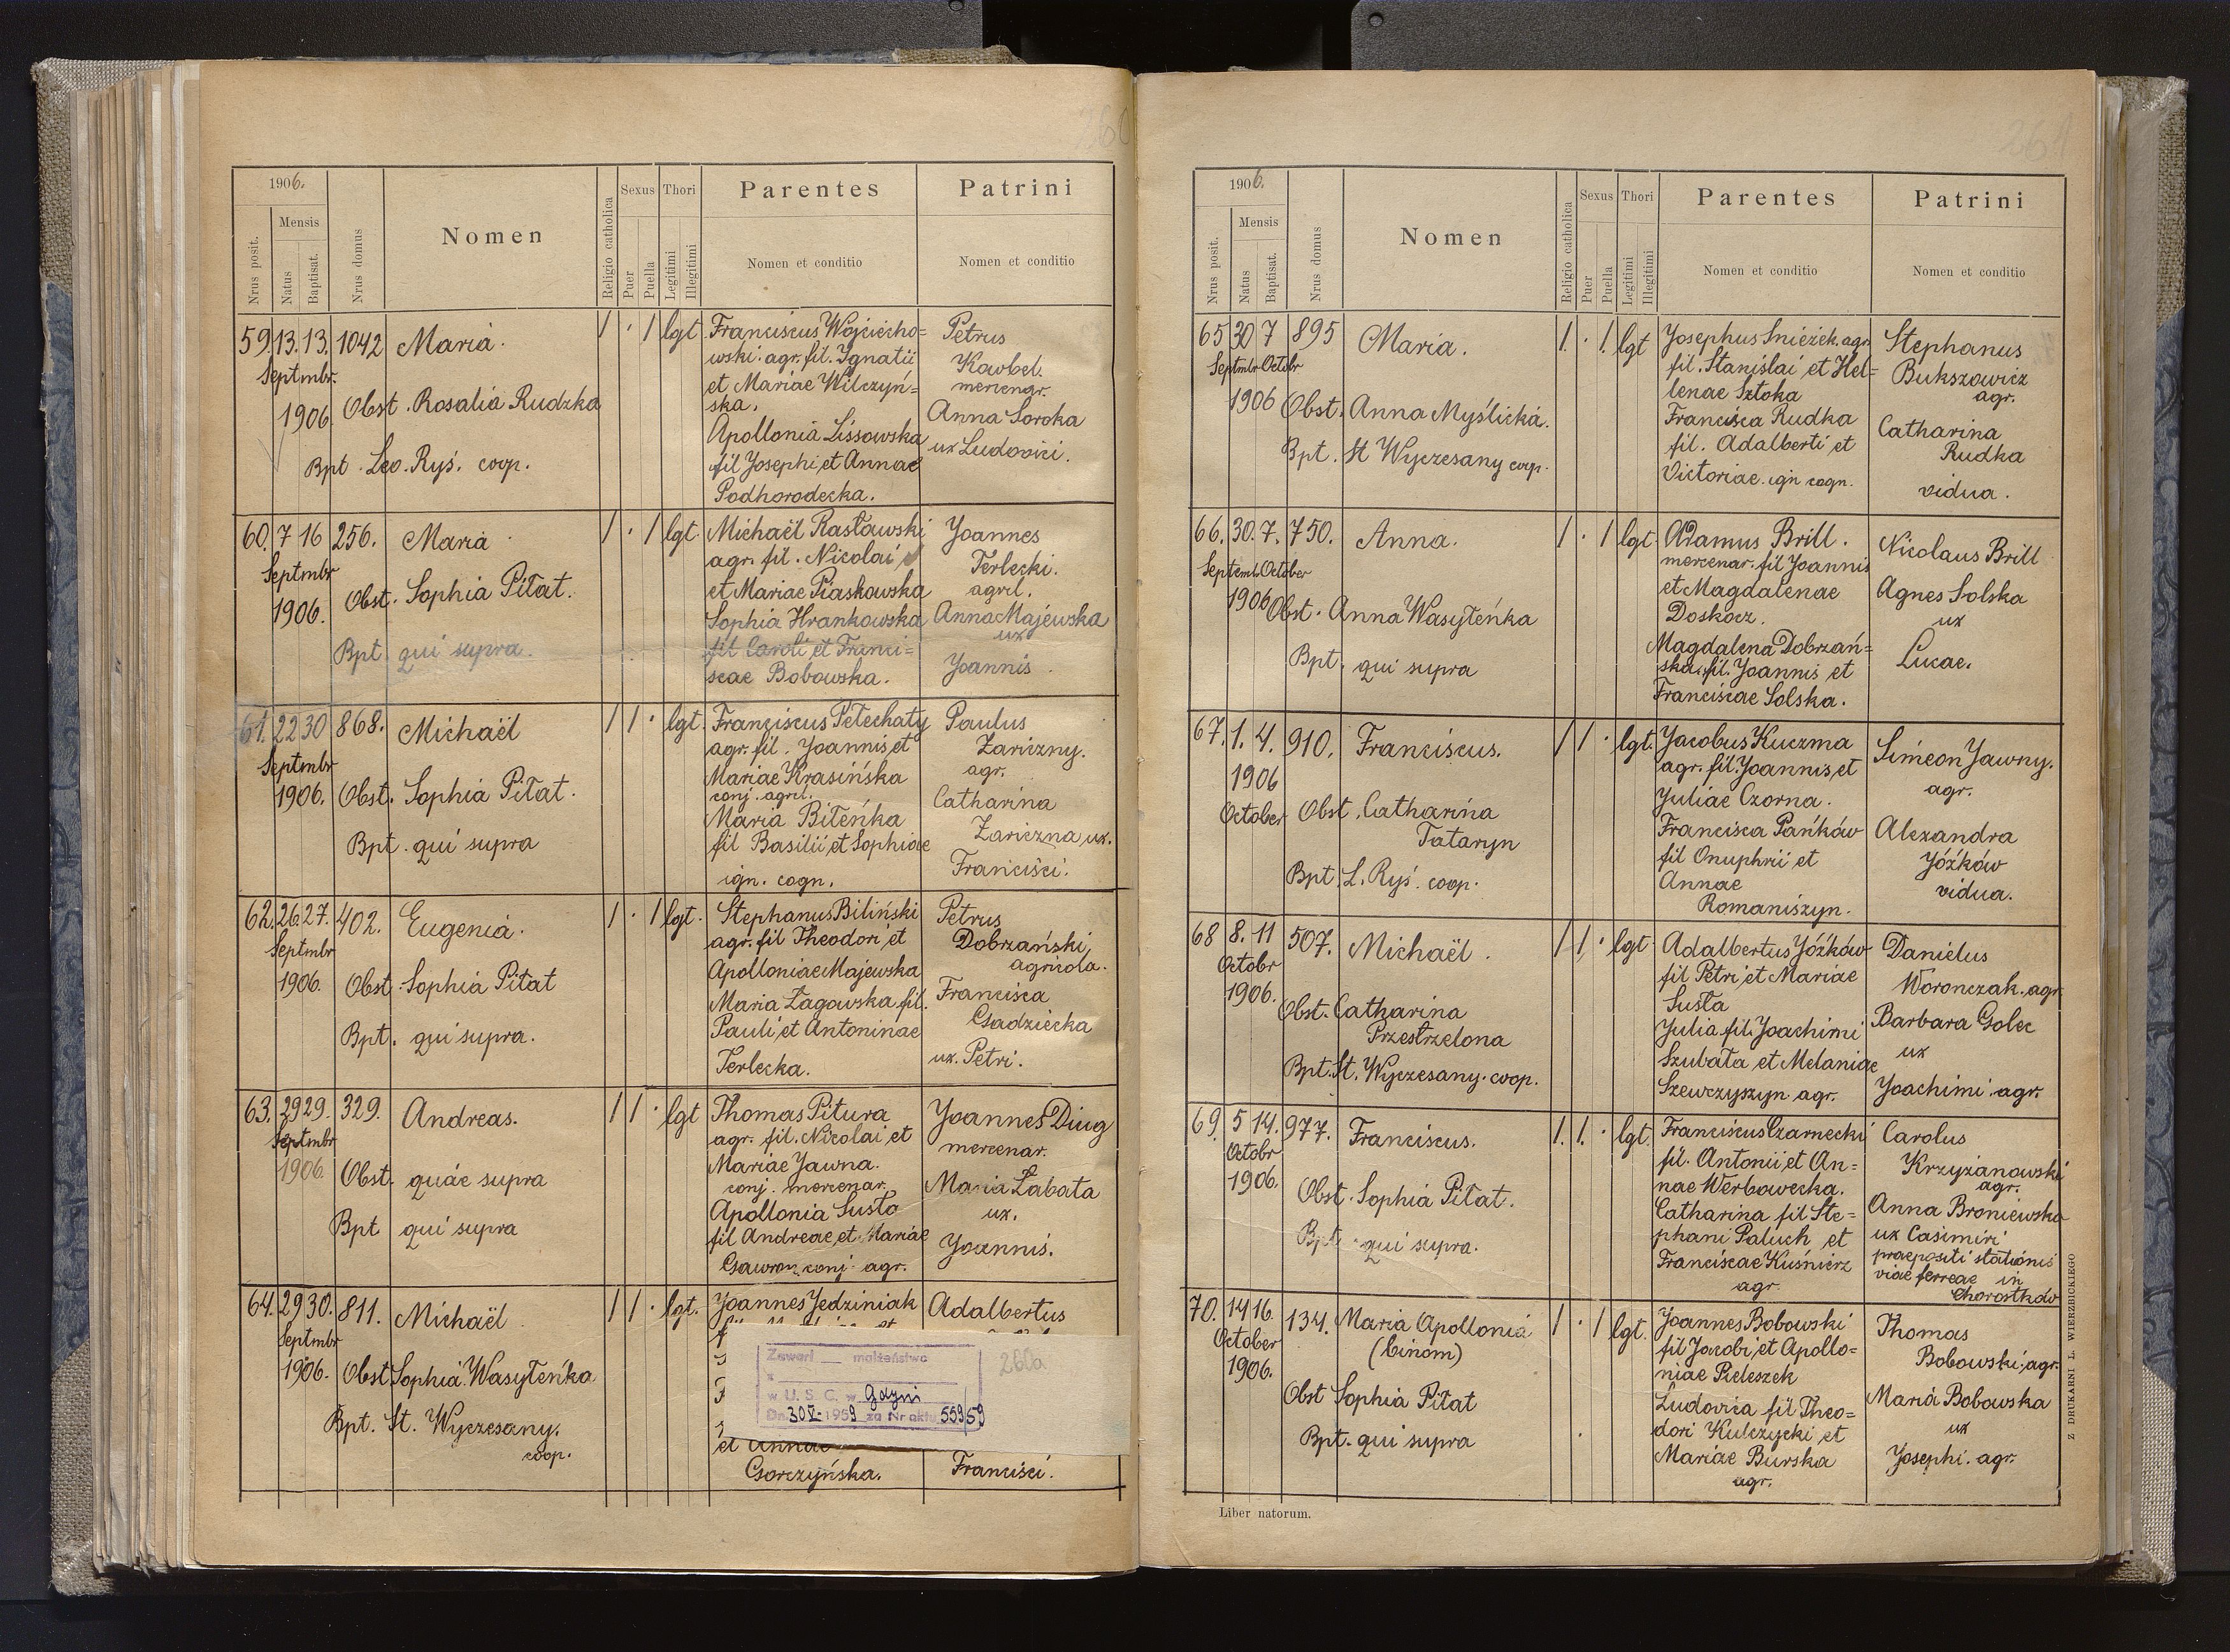 1906.
Nrus posit.
Mensis
Natus
Baptisat.
Nrus domus
Nomen
Religio catholica
Sexus
Puer
Puella
Thori
Legitimi
Illegitimi
Parentes
Nomen et conditio
Patrini
Nomen et conditio
59. 13. 13. 1042 Maria. 1 · 1 lgt
Septmbr.
1906
Obst. Rosalia Rudzka
Bpt. Leo. Ryś. coop.
Franciscus Wojciecho=
wski. agr. fil. Ygnatii
et Mariae Wilczyń=
ska.
Apollonia Lissowska
fil Josephi et Annae
Podhorodecka.
Petrus
Kowbel.
mercenar.
Anna Soroka
ux Ludovici.
60. 7 16 256. Maria 1 · 1 lgt.
Septmbr
1906.
Obst. Sophia Pitat.
Bpt. qui supra.
Michaël Rasławski
agr. fil. Nicolai
et Mariae Piaskowska
Sophia Hrankowska
fil Caroli et Franci=
scae Bobowska.
Yoannes
Terlecki.
agricl.
Anna Majewska
ux
Yoannis.
61. 22 30 868. Michaël 1 1 · lgt.
Septmbr
1906.
Obst. Sophia Pitat.
Bpt. qui supra
Franciscus Petechaty
agr. fil. Yoannis et
Mariae Krasińska
conj. agrcl.
Maria Biteńka
fil Basilii et Sophiae
ign. cogn.
Paulus
Zariczny.
agr.
Catharina
Zariczna ux.
Francisci.
62. 26. 27. 402. Eugenia. 1 · 1 lgt.
Septmbr
1906.
Obst. Sophia Pitat
Bpt. qui supra.
Stephanus Biliński
agr. fil Theodori et
Apolloniae Majewska
Maria Łagowska fil.
Pauli et Antoninae
Terlecka.
Petrus
Dobrzański,
agricola.
Francisca
Gadziecka
ux. Petri.
63. 29 29. 329. Andreas. 1 1 · lgt
Septmbr
1906.
Obst. quae supra
Bpt qui supra
Thomas Pitura
agr. fil. Nicolai et
Mariae Jawna.
conj. mercenar.
Apollonia Susta
fil Andreae et Mariae
Gawron conj. agr.
Yoannes Diug
mercenar.
Maria Łabata
ux.
Yoannis.
64. 29 30. 811. Michaël 1 1 · lgt.
Septmbr
1906.
Obst Sophia Wasyteńka
Bpt. St. Wyczesany.
coop.
Yoannes Jedziniak
Adalbertus
Zawarł ___ małżeństwo
z
w U. S. C. w Gdyni
Dn. 30 V 1959 za Nr aktu 559/59
260a
et Annae
Gorczyńska.
Francisci.
1906.
Nrus posit.
Mensis
Natus
Baptisat.
Nrus domus
Nomen
Religio catholica
Sexus
Puer
Puella
Thori
Legitimi
Illegitimi
Parentes
Nomen et conditio
Patrini
Nomen et conditio
65 30 7 895 Maria. 1. · 1. lgt
Septmbr Octobr
1906
Obst. Anna Myślicka.
Bpt. St Wyczesany coop.
Yosephus Snieżek. agr.
fil. Stanislai et Hel=
lenae Sztoka
Francisca Rudka
fil. Adalberti et
Victoriae. ign cogn.
Stephanus
Bukszowicz
agr.
Catharina
Rudka
vidua.
66. 30. 7. 750. Anna. 1 · 1 lgt
Septemb. October
1906
Obst. Anna Wasyteńka
Bpt. qui supra
Adamus Brill.
mercenar. fil Yoannis
et Magdalenae
Doskocz.
Magdalena Dobrzań=
ska. fil. Yoannis et
Franciscae Solska.
Nicolaus Brill
Agnes Solska
ux
Lucae.
67. 1. 4. 910. Franciscus. 1 1 · lgt.
1906
October
Obst. Catharina
Tataryn
Bpt. L. Ryś. coop.
Yacobus Kuczma
agr. fil. Yoannis et
Yuliae Czorna.
Francisca Pańków
fil Onuphrii et
Annae
Romaniszyn.
Simeon Jawny.
agr.
Alexandra
Yóźków
vidua.
68 8. 11 507. Michaël. 1 1. · lgt
Octobr
1906.
Obst. Catharina
Przestrzelona
Bpt. St. Wyczesany. coop.
Adalbertus Yóźków
fil Petri et Mariae
Susta
Yulia fil. Yoachimi
Szubata et Melaniae
Szewczyszyn agr.
Danielus
Woronczak. agr.
Barbara Golec
ux
Yoachimi. agr.
69. 5 14. 977. Franciscus. 1. 1. · lgt.
Octobr
1906.
Obst. Sophia Pitat.
Bpt. qui supra.
Franciscus Czarnecki
fil. Antonii et An=
nae Werbowecka.
Catharina fil Ste=
phani Paluch et
Franciscae Kuśnierz
agr.
Carolus
Krzyżanowski
agr.
Anna Broniewska
ux Casimiri
praepositi stationis
viae ferreae in
Chorostków
70. 14 16. 134. Maria Apollonia 1 · 1 lgt.
October
1906.
(binom)
Obst Sophia Pitat
Bpt. qui supra
Yoannes Bobowski
fil Jacobi et Apollo=
niae Pieleszek
Ludovica fil Theo=
dori Kulczycki et
Mariae Burska
agr.
Thomas
Bobowski, agr.
Maria Bobowska
ux
Yosephi. agr.
Liber natorum.
Z DRUKARNI L. WIERZBICKIEGO